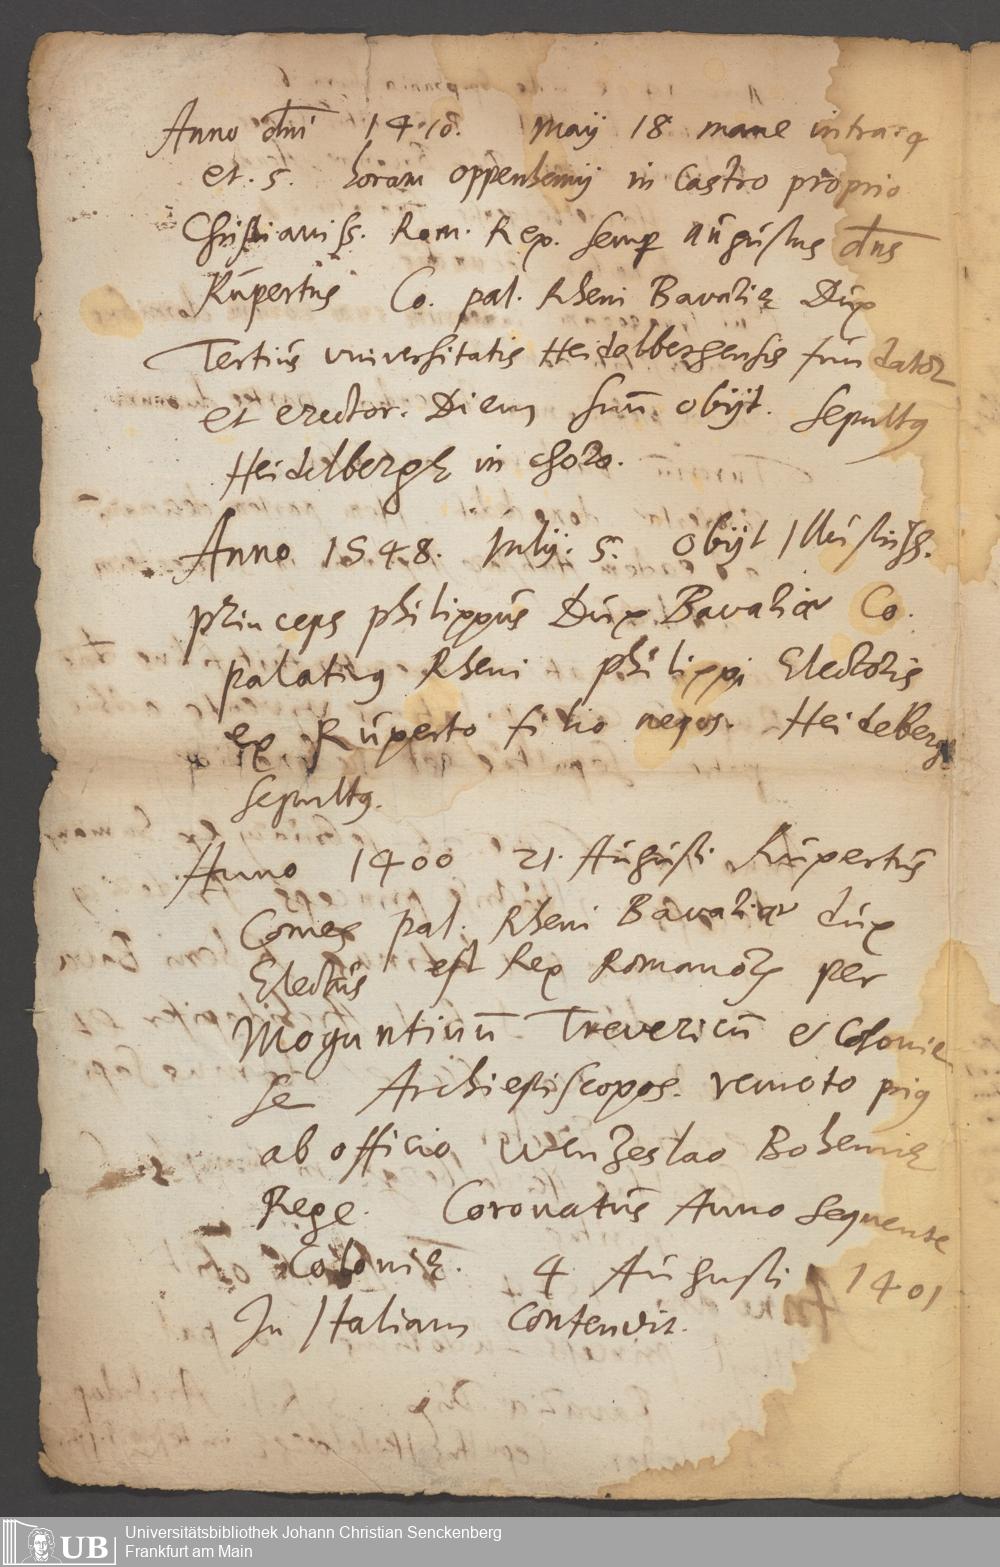 Anno dni 1410. Maij 18 mane intra 4
et. 5. horam oppenhemij in Castro proprio
Christianiss. Rom. Rex. semp augústus dns
Rúpertus Co. pal. Rheni Bavarię Dúx
Tertiús universitatis Heidelbergensis fundator
et erector. Diem suū obijt. Sepultus
Heidelbergę in choro.
Anno 1548. Julij. 5. Obijt Illústriss.
princeps philippús Dúx Bavariæ Co.
palatinus Rheni philippi Electoris
ex Rúperto filio nepos. Heidelberg
sepultus.
Anno 1400 21. Aúgústi Rúpertús
Comes pal. Rheni Bavariæ dúx
Electús est Rex Romanorum per
Moguntinū Trevericū et Colonien
se Archiepiscopos. remoto prius
ab officio Wenzeslao Bohemię
Rege. Coronatús Anno sequente
Colonię. 4 Aúgusti 1401
In Italiam contendit.
UB Universitätsbibliothek Johann Christian Senckenberg
Frankfurt am Main